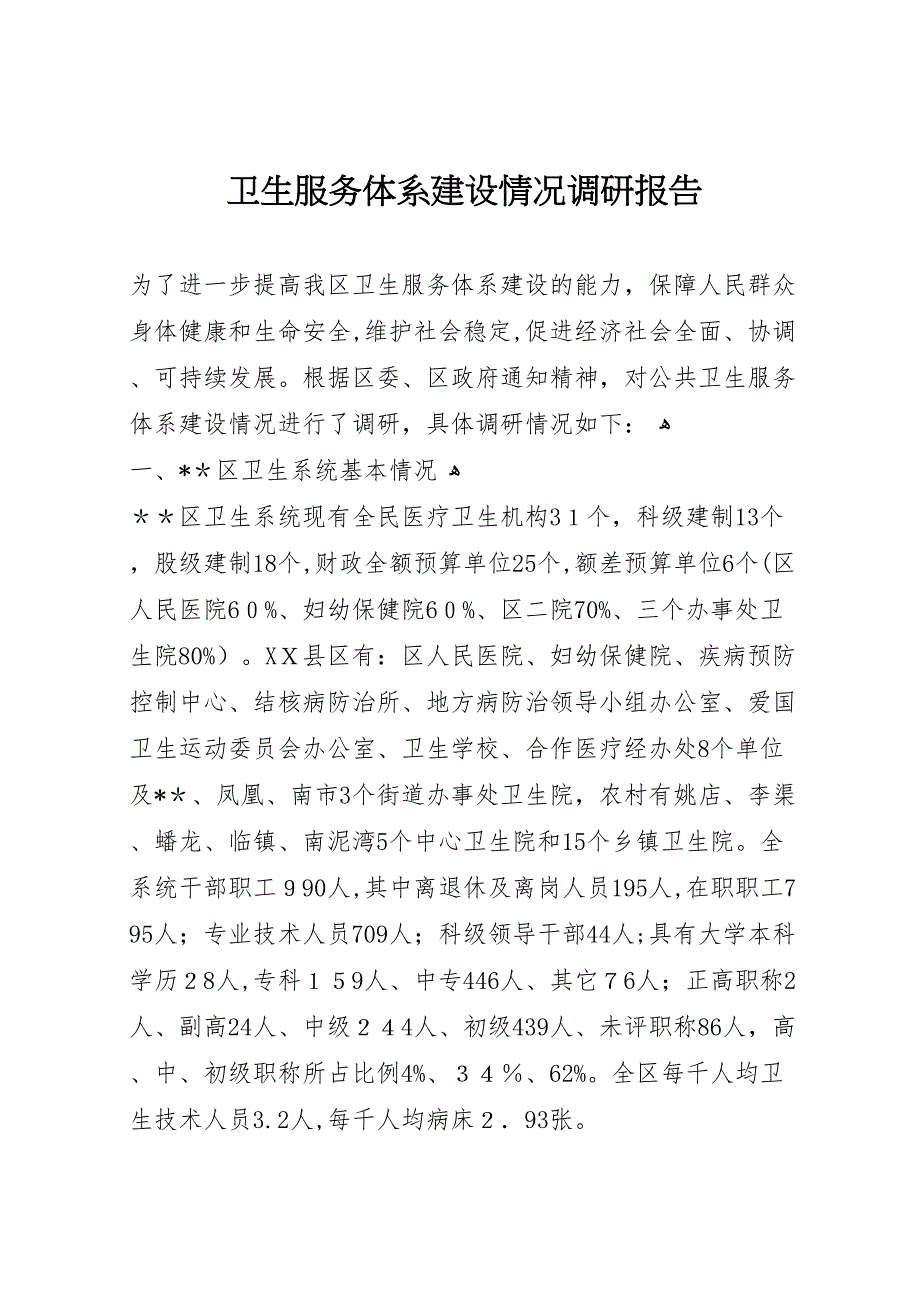 卫生服务体系建设情况调研报告
为了进一步提高我区卫生服务体系建设的能力，保障人民群众
身体健康和生命安全,维护社会稳定,促进经济社会全面、协调
、可持续发展。根据区委、区政府通知精神，对公共卫生服务
体系建设情况进行了调研，具体调研情况如下： ﻫ
一、*＊区卫生系统基本情况 ﻫ
＊＊区卫生系统现有全民医疗卫生机构3１个，科级建制13个
，股级建制18个,财政全额预算单位25个,额差预算单位6个(区
人民医院6０%、妇幼保健院6０%、区二院70%、三个办事处卫
生院80%）。XＸ县区有：区人民医院、妇幼保健院、疾病预防
控制中心、结核病防治所、地方病防治领导小组办公室、爱国
卫生运动委员会办公室、卫生学校、合作医疗经办处8个单位
及*＊、凤凰、南市3个街道办事处卫生院，农村有姚店、李渠
、蟠龙、临镇、南泥湾5个中心卫生院和15个乡镇卫生院。全
系统干部职工９90人,其中离退休及离岗人员195人,在职职工7
95人；专业技术人员709人；科级领导干部44人;具有大学本科
学历２8人,专科１５9人、中专446人、其它７6人；正高职称2
人、副高24人、中级２４４人、初级439人、未评职称86人，高
、中、初级职称所占比例4%、３４％、62%。全区每千人均卫
生技术人员3.2人,每千人均病床２．93张。